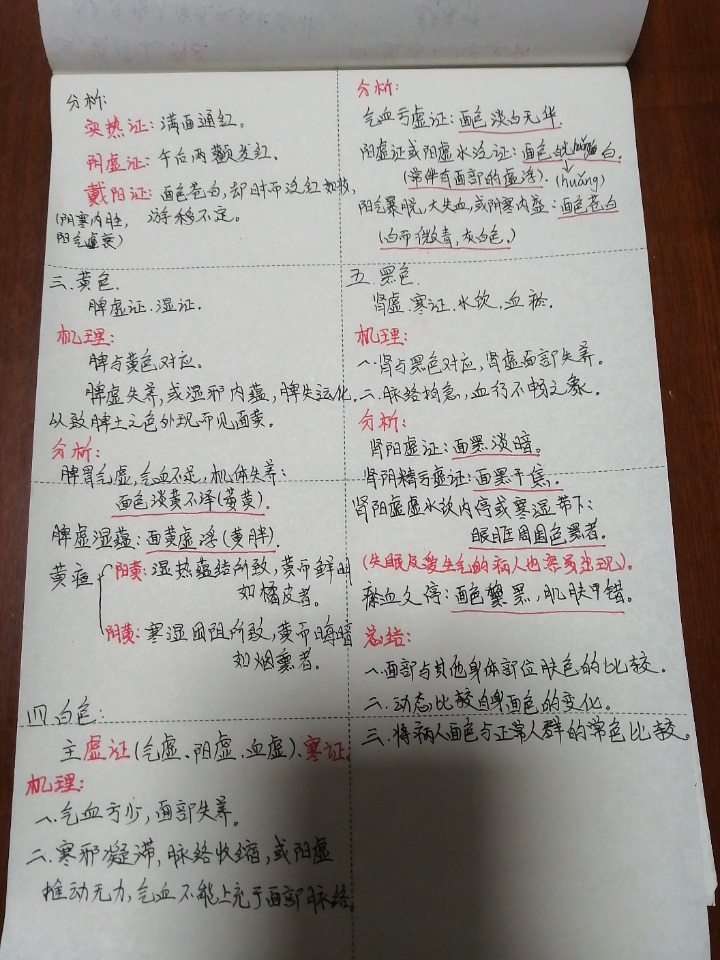 分析:
实热证:满面通红。
阴虚证:午后两颧发红.
戴阳证:面色苍白,却时而泛红如妆,
(阴寒内胜, 游移不定。
阳气虚衰)
三.黄色.
脾虚证.湿证.
机理:
脾与黄色对应。
脾虚失养,或湿邪内蕴,脾失运化.
从致脾土之色外现而见面黄。
分析:
脾胃气虚,气血不足,机体失养:
面色淡黄不泽(萎黄).
脾虚湿蕴:面黄虚浮(黄胖).
黄疸
阳黄:湿热蕴结所致,黄而鲜明
如橘皮者。
阴黄:寒湿困阻所致,黄而晦暗
如烟熏者。
四 白色:
主虚证(气虚、阳虚、血虚)、寒证.
机理:
一.气血亏少,面部失养。
二.寒邪凝滞,脉络收缩,或阳虚
推动无力,气血不能上充于面部脉络.
分析:
气血亏虚证:面色淡白无华.
阳虚证或阳虚水泛证:面色㿠白.
(常伴有面部的虚浮). (huǎng)
阳气暴脱,大失血,或阴寒内盛:面色苍白
(白而微青,灰白色.)
五.黑色.
肾虚.寒证.水饮,血瘀.
机理:
一.肾与黑色对应,肾虚面部失养.
二.脉络拘急,血行不畅之象.
分析:
肾阳虚证:面黑淡暗。
肾阴精亏虚证:面黑干焦.
肾阳虚虚水饮内停或寒湿带下:
眼眶周围色黑者.
瘀血久停:面色黧黑,肌肤甲错。
总结:
一.面部与其他身体部位肤色的比较.
二.动态比较自身面色的变化。
三.将病人面色与正常人群的常色比较。